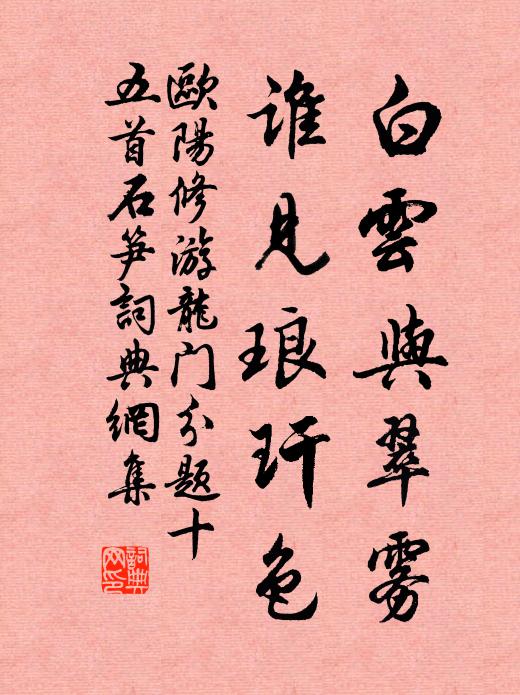 白雲與翠霧
谁見琅玕色
歐陽修游龍门分题十
五首石笋詞典網集
詞典网印